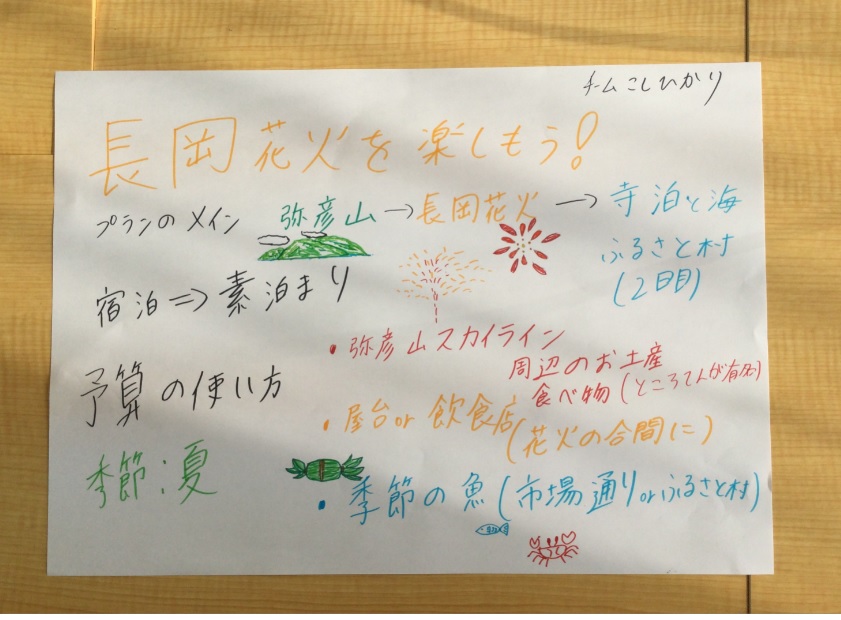 チームこしひかり
長岡花火を楽しもう!
プランのメイン 弥彦山→長岡花火→寺泊と海
ふるさと村
(2日目)
宿泊⇒素泊まり
・弥彦山スカイライン
周辺のお土産
食べ物(ところてんが有名)
予算の使い方
・屋台or飲食店(花火の合間に)
季節:夏
・季節の魚(市場通りorふるさと村)